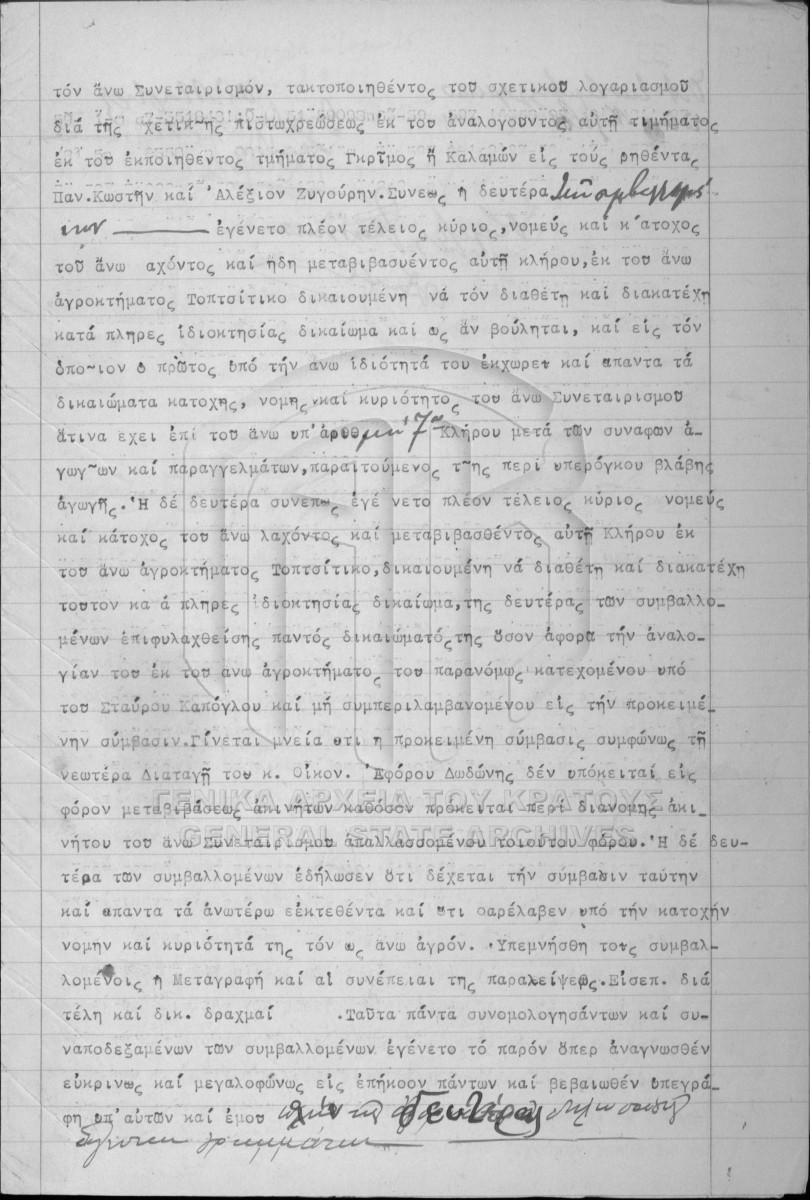 τόν ἄνω Συνεταιρισμόν, τακτοποιηθέντος τοῦ σχετικοῦ λογαριασμοῦ
διά τῆς χετικ ῆς πιστωχρεώσεως ἐκ τοῦ ἀναλογοῦντος αὐτῇ τιμήματος
ἐκ τοῦ ἐκποιηθέντος τμήματος Γκρῖμος ἤ Καλαμῶν εἰς τούς ρηθέντας
Παν.Κωστῆν καί Ἀλέξιον Ζυγούρην.Συνεῶς ἡ δευτέρα
ἐγένετο πλέον τέλειος κύριος,νομεύς καί κ ́ατοχος
τοῦ ἄνω αχόντος καί ἤδη μεταβιβασυέντος αὐτῇ κλήρου,ἐκ τοῦ ἄνω
ἀγροκτήματος Τοπτσίτικο δικαιουμένη νά τόν διαθέτῃ καί διακατέχῃ
κατά πλῆρες ἰδιοκτησίας δικαίωμα καί ὡς ἄν βούληται, καί εἰς τόν
ὁπο~ιον ὁ πρῶτος ὑπό τήν ἄνω ἰδιότητά του ἐκχωρεῖ καί ἅπαντα τά
δικαιώματα κατοχῆς, νομῆς καί κυριότητος τοῦ ἄνω Συνεταιρισμοῦ
ἅτινα ἔχει ἐπί τοῦ ἄνω ὑπ'ἀρυθμ 7 Κλήρου μετά τῶν συναφῶν ἀ-
γωγ~ῶν καί παραγγελμάτων,παραιτούμενος τ~ῆς περί ὑπερόγκου βλάβης
ἀγωγῆς.Ἡ δέ δευτέρα συνεπῶς ἐγέ νετο πλέον τέλειος κύριος νομεύς
καί κάτοχος τοῦ ἄνω λαχόντος καί μεταβιβασθέντος αὐτῇ Κλήρου ἐκ
τοῦ ἄνω ἀγροκτήματος Τοπτσίτικο,δικαιουμένη νά διαθέτῃ καί διακατέχῃ
τοῦτον κα ά πλῆρες ἰδιοκτησίας δικαίωμα,τῆς δευτέρας τῶν συμβαλλο-
μένων ἐπιφυλαχθείσης παντός δικαιώματός της ὅσον ἀφορᾶ τήν ἀναλο-
γίαν του ἐκ τοῦ ἄνω ἀγροκτήματος τοῦ παρανόμως κατεχομένου ὑπό
τοῦ Σταύρου Καπόγλου καί μή συμπεριλαμβανομένου εἰς τήν προκειμέ-
νην σύμβασιν.Γίνεται μνεία ὅτι ἡ προκειμένη σύμβασις συμφώνως τῇ
νεωτέρᾳ Διαταγῇ τοῦ κ. Οἰκον. Ἐφόρου Δωδώνης δέν ὑπόκειται εἰς
φόρον μεταβιβάσεως ἀκινήτων καθόσον πρόκειται περί διανομῆς ἀκι-
νήτου τοῦ ἄνω Συνεταιρισμοῦ ἀπαλλασσομένου τοιούτου φόρου.Ἡ δέ δευ-
τέρα τῶν συμβαλλομένων ἐδήλωσεν ὅτι δέχεται τήν σύμβασιν ταύτην
καί ἅπαντα τά ἀνωτέρω ἐέκτεθέντα καί ὅτι παρέλαβεν ὑπό τήν κατοχήν
νομήν καί κυριότητά της τόν ὡς ἄνω ἀγρόν. Ὑπεμνήσθη τοῖς συμβαλ-
λομένοις ἡ Μεταγραφή καί αἱ συνέπειαι τῆς παραλείψεως.Εἰσεπ. διά
τέλη καί δικ. δραχμαί .Ταῦτα πάντα συνομολογησάντων καί συ-
ναποδεξαμένων τῶν συμβαλλομένων ἐγένετο τό παρόν ὅπερ ἀναγνωσθέν
εὐκρινῶς καί μεγαλοφώνως εἰς ἐπήκοον πάντων καί βεβαιωθέν ὑπεγρά-
φη ὑπ'αὐτῶν καί ἐμοῦ πλήν τῆς δευτέρας
γράμματα
ΓΕΝΙΚΑ ΑΡΧΕΙΑ ΤΟΥ ΚΡΑΤΟΥΣ
GENERAL STATE ARCHIVES